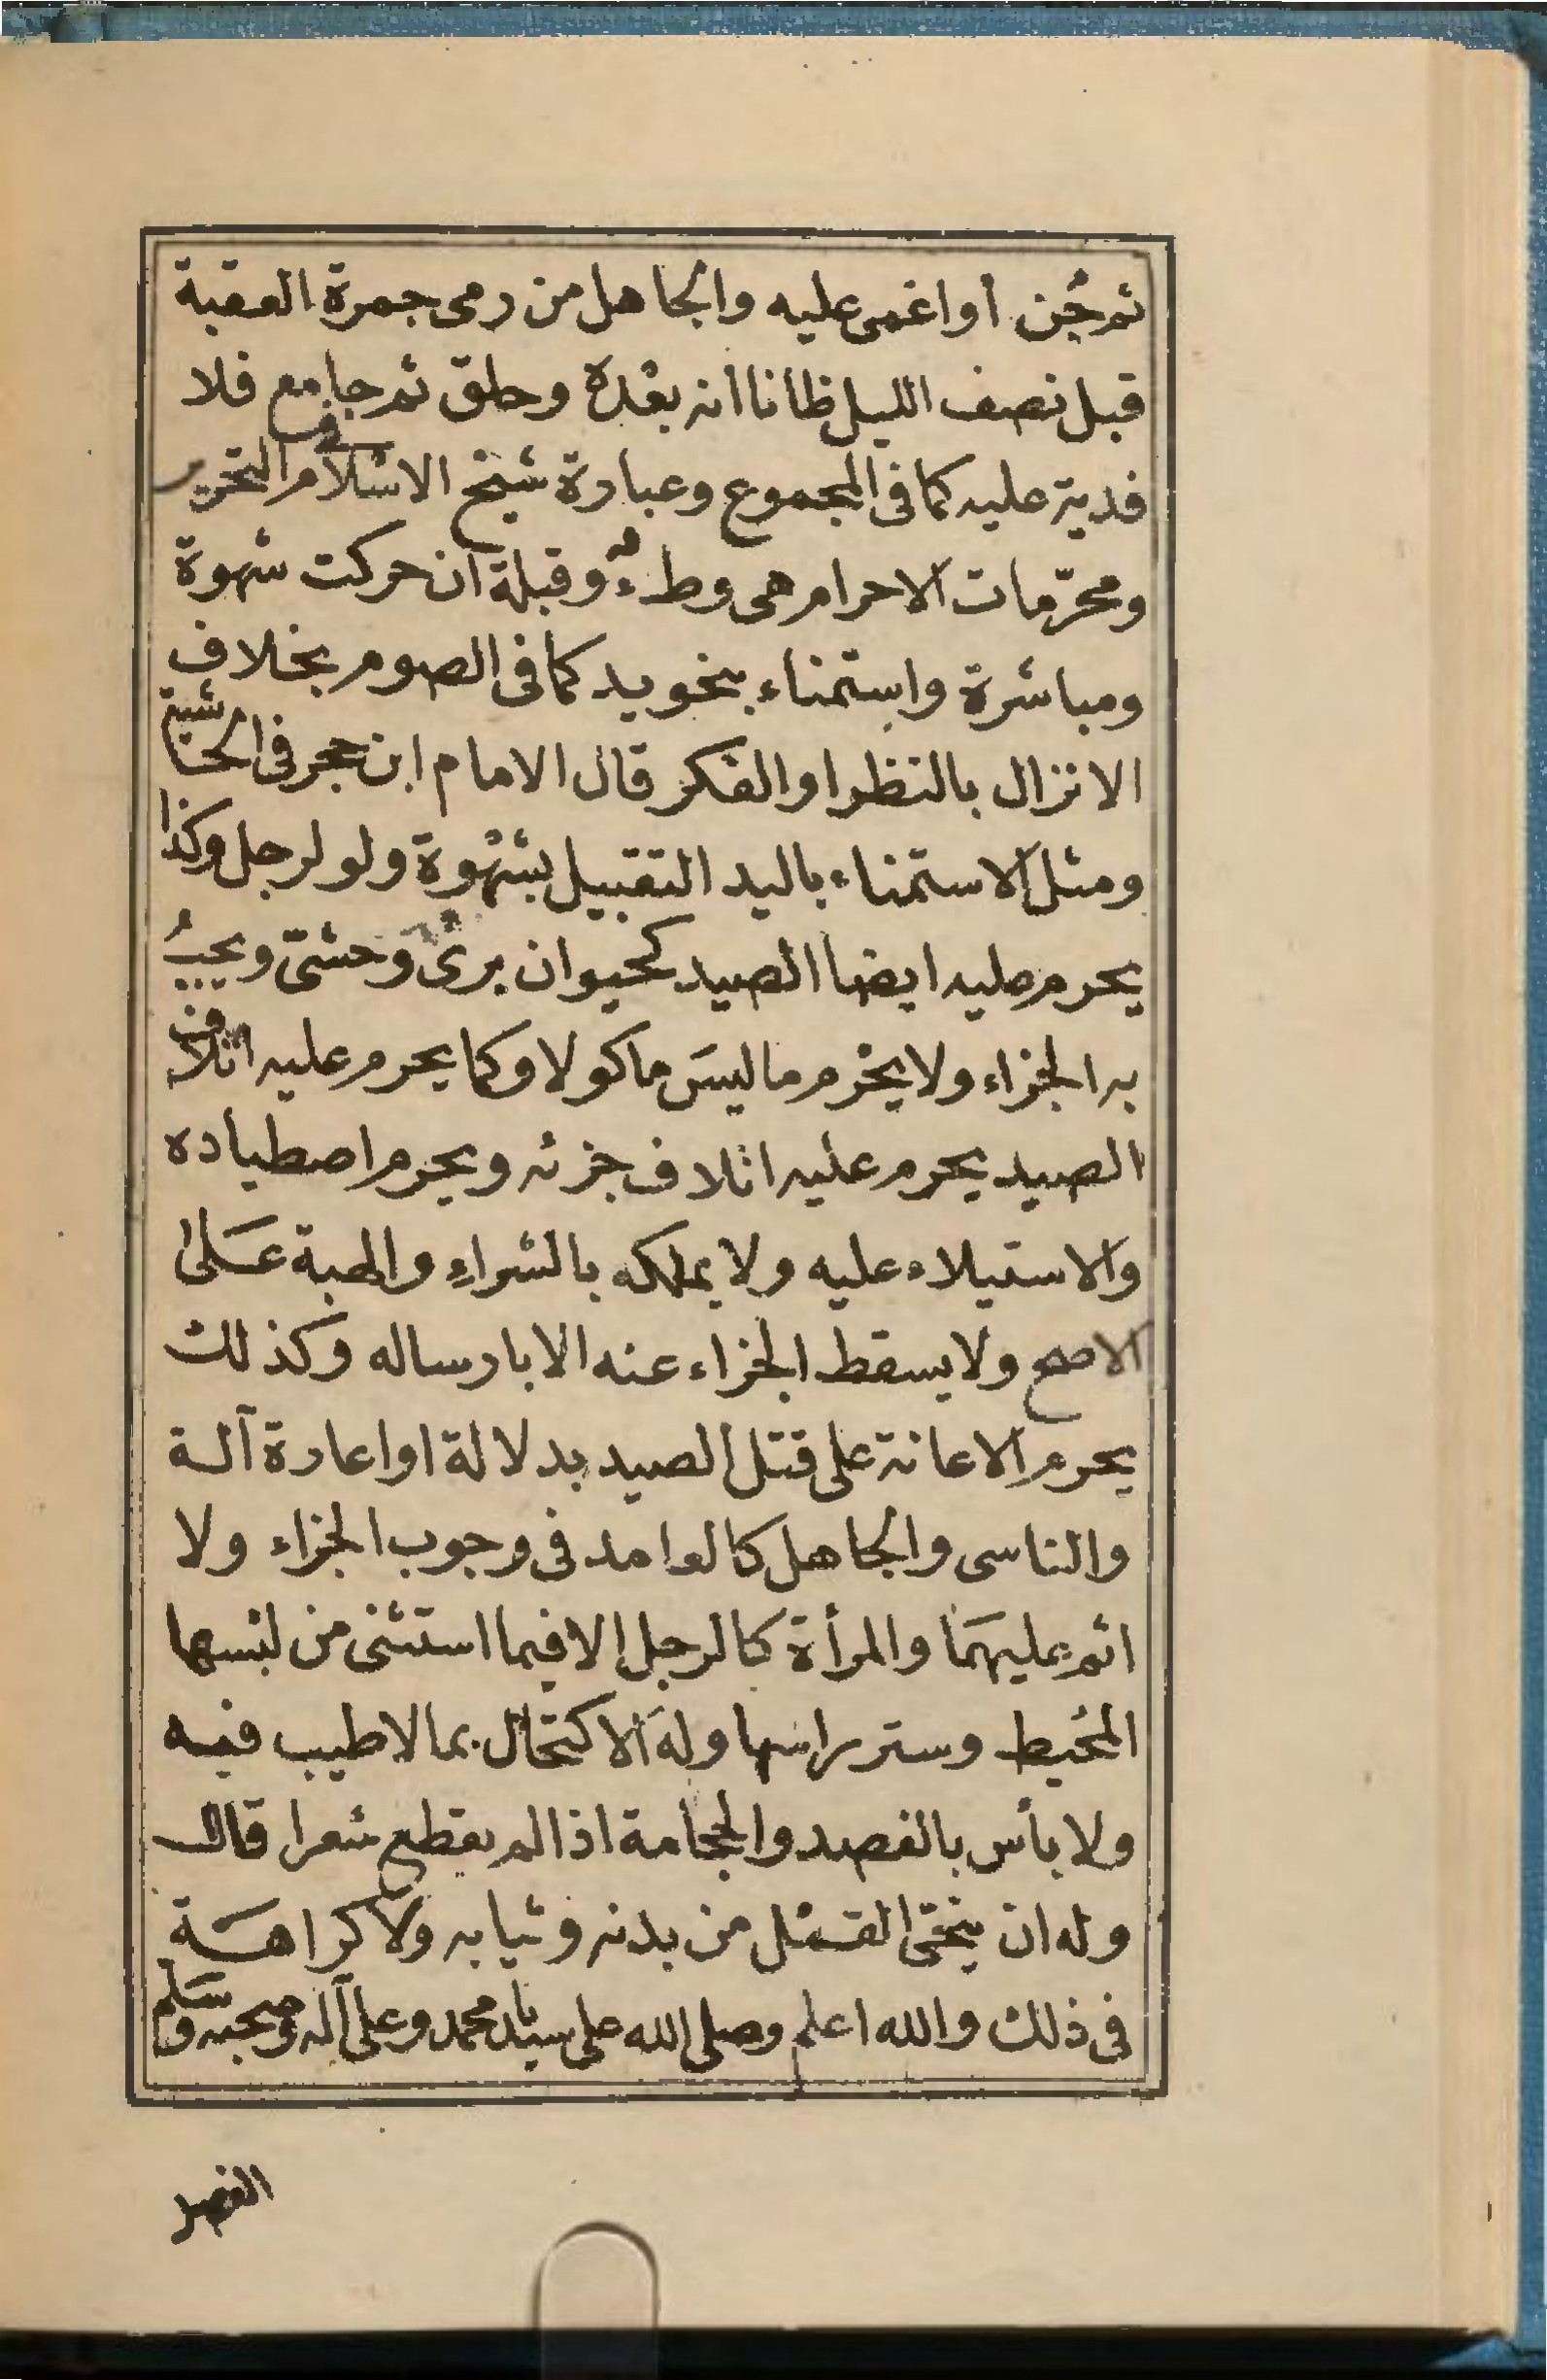 ثم جُن أو اغمى عليه والجاهل من رمى جمرة العقبة
قبل نصف الليل ظانا أنه بعْده وحلق ثم جامع فلا
فدية عليه كما فى المجموع وعبارة شيخ الاسْلام فى التحرير
ومحرّمات الاحرام هى وطءٌ وقبلة ان حركت شهوة
ومباشرة واستمناء بنحو يد كما فى الصوم بخلاف
الانزال بالنظر او الفكر قال الامام ابن حجر فى الحاشية
ومثل الاستمناء باليد التقبيل بشهْوة ولو لرجل وكذا
يحرم عليه ايضا الصيد كحيوان برىّ وحشىّ ويجبُ
به الجزاء ولا يحْرم ما ليسَ ماكولا وكما يحرم عليه اتلاف
الصيد يحرم عليه اتلاف جزئه ويحرم اصطياده
والاستيلاء عليه ولا يملكه بالشراءِ والهبة عَلىٰ
الاصح ولا يسقط الجزاء عنه الا بارساله وكذلك
يحرم الاعانة على قتل الصيد بدلالة او اعارة آلة
والناسى والجاهل كالعامد فى وجوب الجزاء ولا
اثم عليهمَا والمرأة كالرجل الا فيما استثنى من لبْسها
المخيط وستر راسها وله الاكتحال بما لا طيب فيه
ولا بأس بالفصد والحجامة اذا لم يقطع شعرا قال
وله ان ينحّى القمْل من بدنه وثيابه ولا كراهَة
فى ذلك والله اعلم وصلى الله على سيدنا محمد وعلى آله وصحبه وسَلم
الفصل